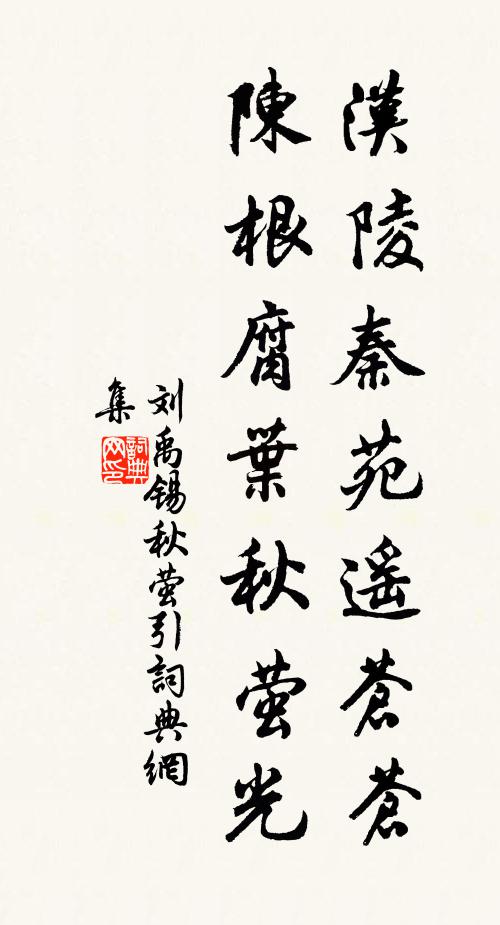 漢陵秦苑遥蒼蒼
陳根腐葉秋萤光
刘禹锡秋萤引詞典網
集
詞典
网印